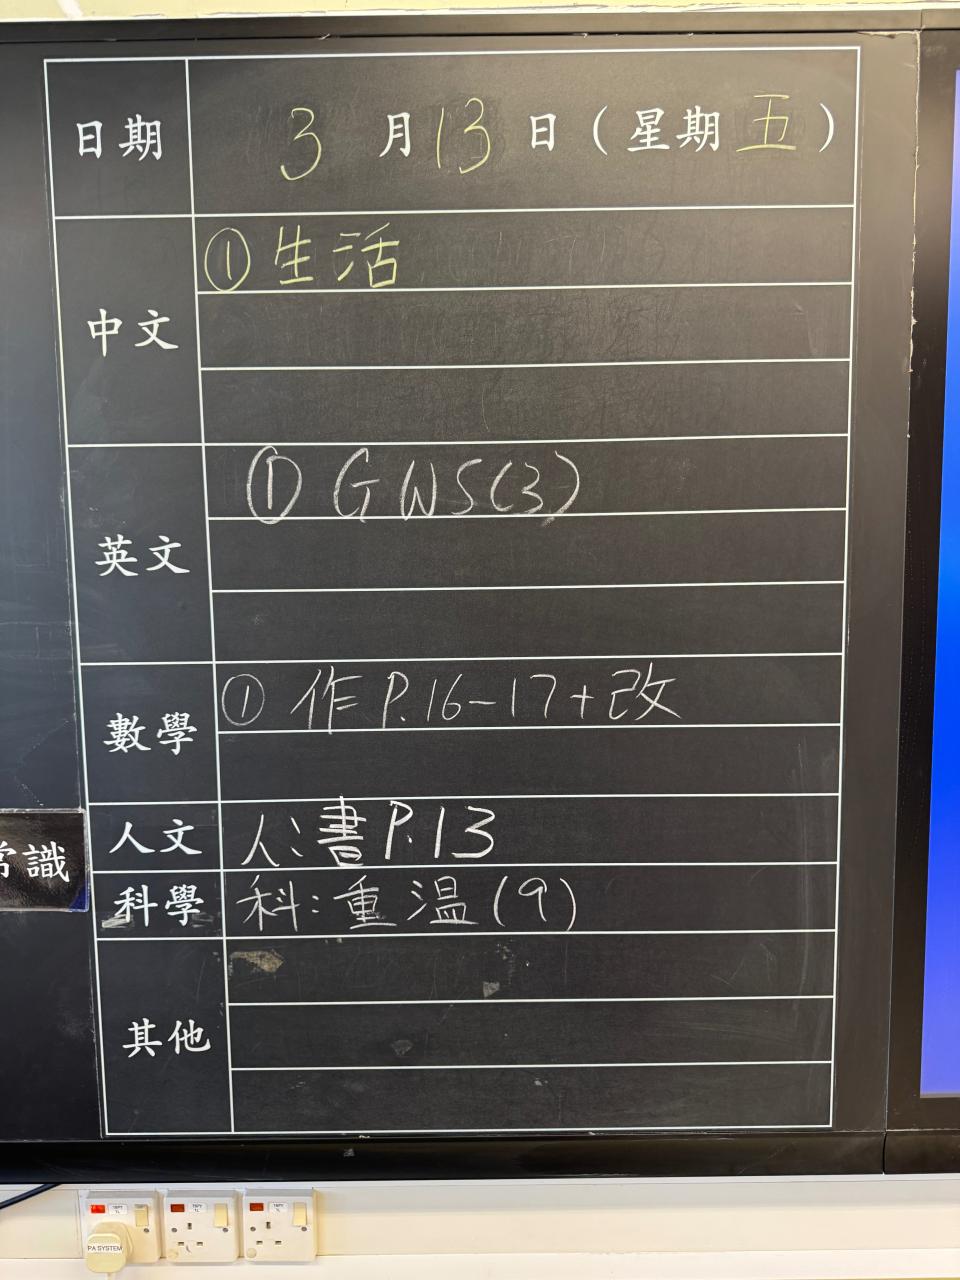 日期 3月13日(星期五)
中文 ①生活
英文 ①GWS(3)
數學 ①作P.16-17+改
人文 人:書P.13
常識
科學 科:重溫(9)
其他
PA SYSTEM